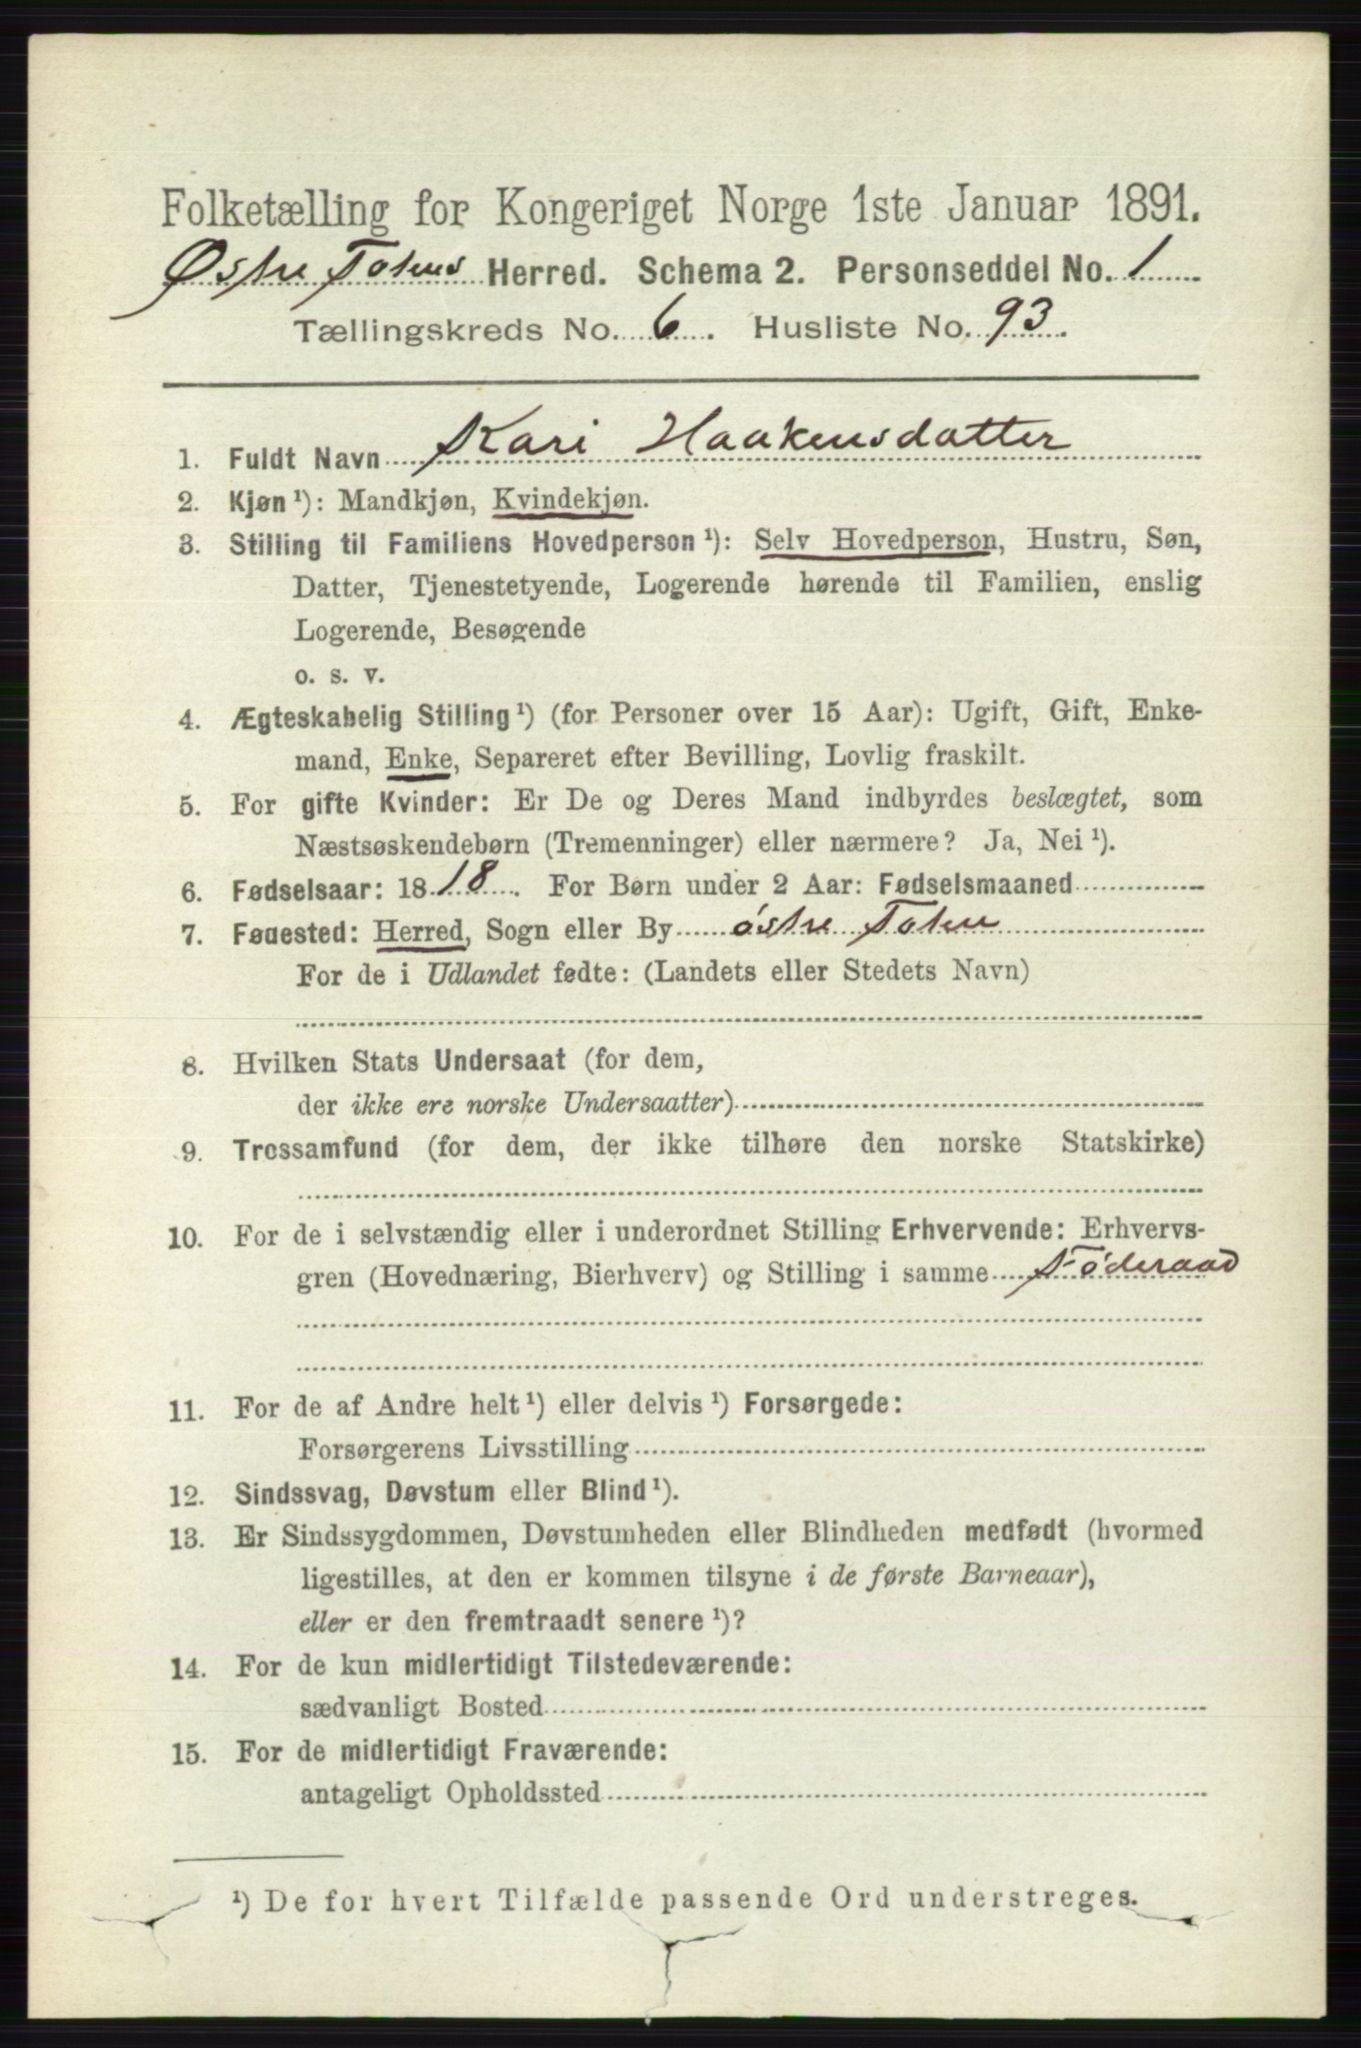 Folketælling for Kongeriget Norge 1ste Januar 1891.
Østre Totens Herred. Schema 2. Personseddel No. 1
Tællingskreds No. 6. Husliste No. 93.
1. Fuldt Navn Kari Haakensdatter
2. Kjøn ¹): Mandkjøn, Kvindekjøn.
3. Stilling til Familiens Hovedperson ¹): Selv Hovedperson, Hustru, Søn,
Datter, Tjenestetyende, Logerende hørende til Familien, enslig
Logerende, Besøgende
o. s. v.
4. Ægteskabelig Stilling ¹) (for Personer over 15 Aar): Ugift, Gift, Enke-
mand, Enke, Separeret efter Bevilling, Lovlig fraskilt.
5. For gifte Kvinder: Er De og Deres Mand indbyrdes beslægtet, som
Næstsøskendebørn (Tremenninger) eller nærmere? Ja, Nei ¹).
6. Fødselsaar: 1818. For Børn under 2 Aar: Fødselsmaaned
7. Fødested: Herred, Sogn eller By østre Toten
For de i Udlandet fødte: (Landets eller Stedets Navn)
8. Hvilken Stats Undersaat (for dem,
der ikke ere norske Undersaatter)
9. Trossamfund (for dem, der ikke tilhøre den norske Statskirke)
10. For de i selvstændig eller i underordnet Stilling Erhvervende: Erhvervs-
gren (Hovednæring, Bierhverv) og Stilling i samme Føderaad
11. For de af Andre helt ¹) eller delvis ¹) Forsørgede:
Forsørgerens Livsstilling
12. Sindssvag, Døvstum eller Blind ¹).
13. Er Sindssygdommen, Døvstumheden eller Blindheden medfødt (hvormed
ligestilles, at den er kommen tilsyne i de første Barneaar),
eller er den fremtraadt senere ¹)?
14. For de kun midlertidigt Tilstedeværende:
sædvanligt Bosted
15. For de midlertidigt Fraværende:
antageligt Opholdssted
¹) De for hvert Tilfælde passende Ord understreges.